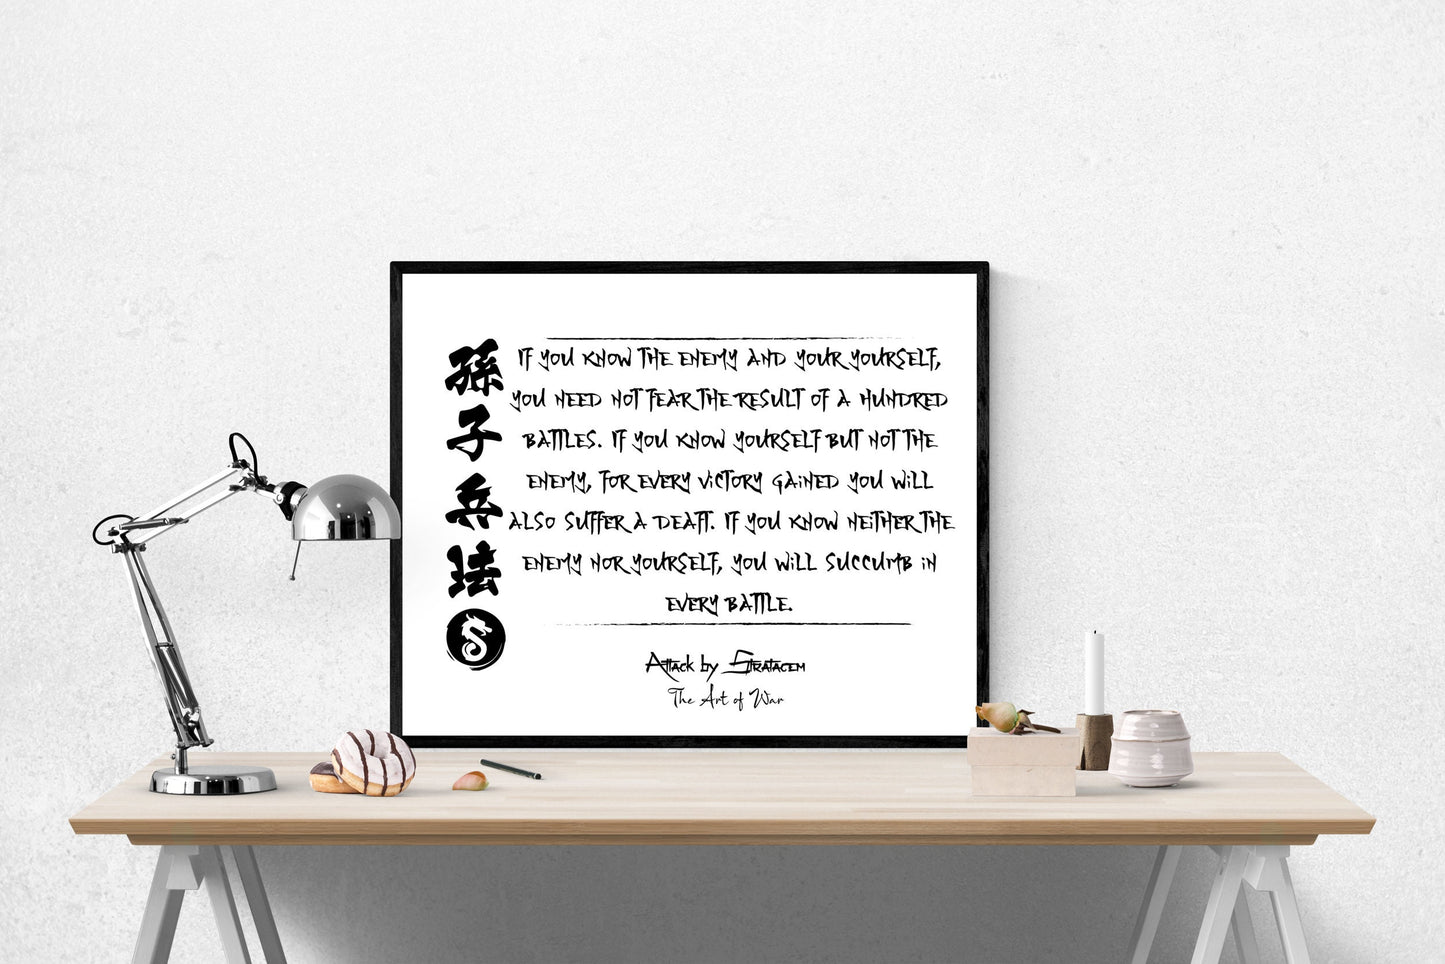 孫子兵法
If you know the enemy and your yourself,
you need not fear the result of a hundred
battles. If you know yourself but not the
enemy, for every victory gained you will
also suffer a deaft. If you know neither the
enemy nor yourself, you will succumb in
every battle.
Attack by Stratagem
The Art of War